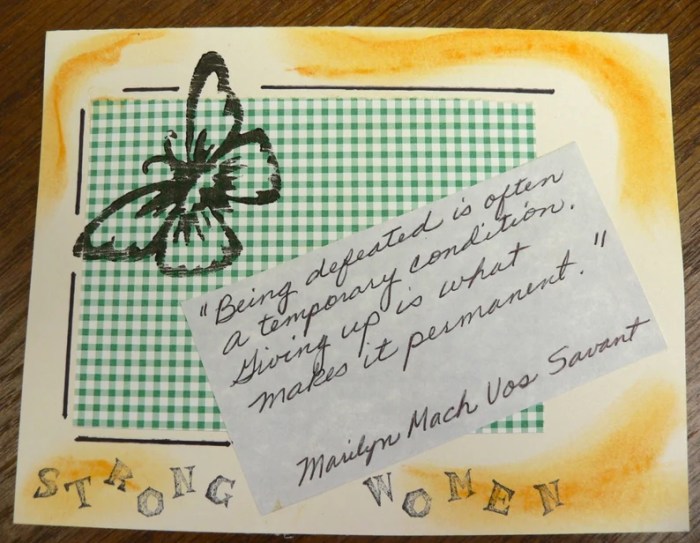 "Being defeated is often
a temporary condition.
Giving up is what
makes it permanent."
Marilyn Mach Vos Savant
STRONG WOMEN